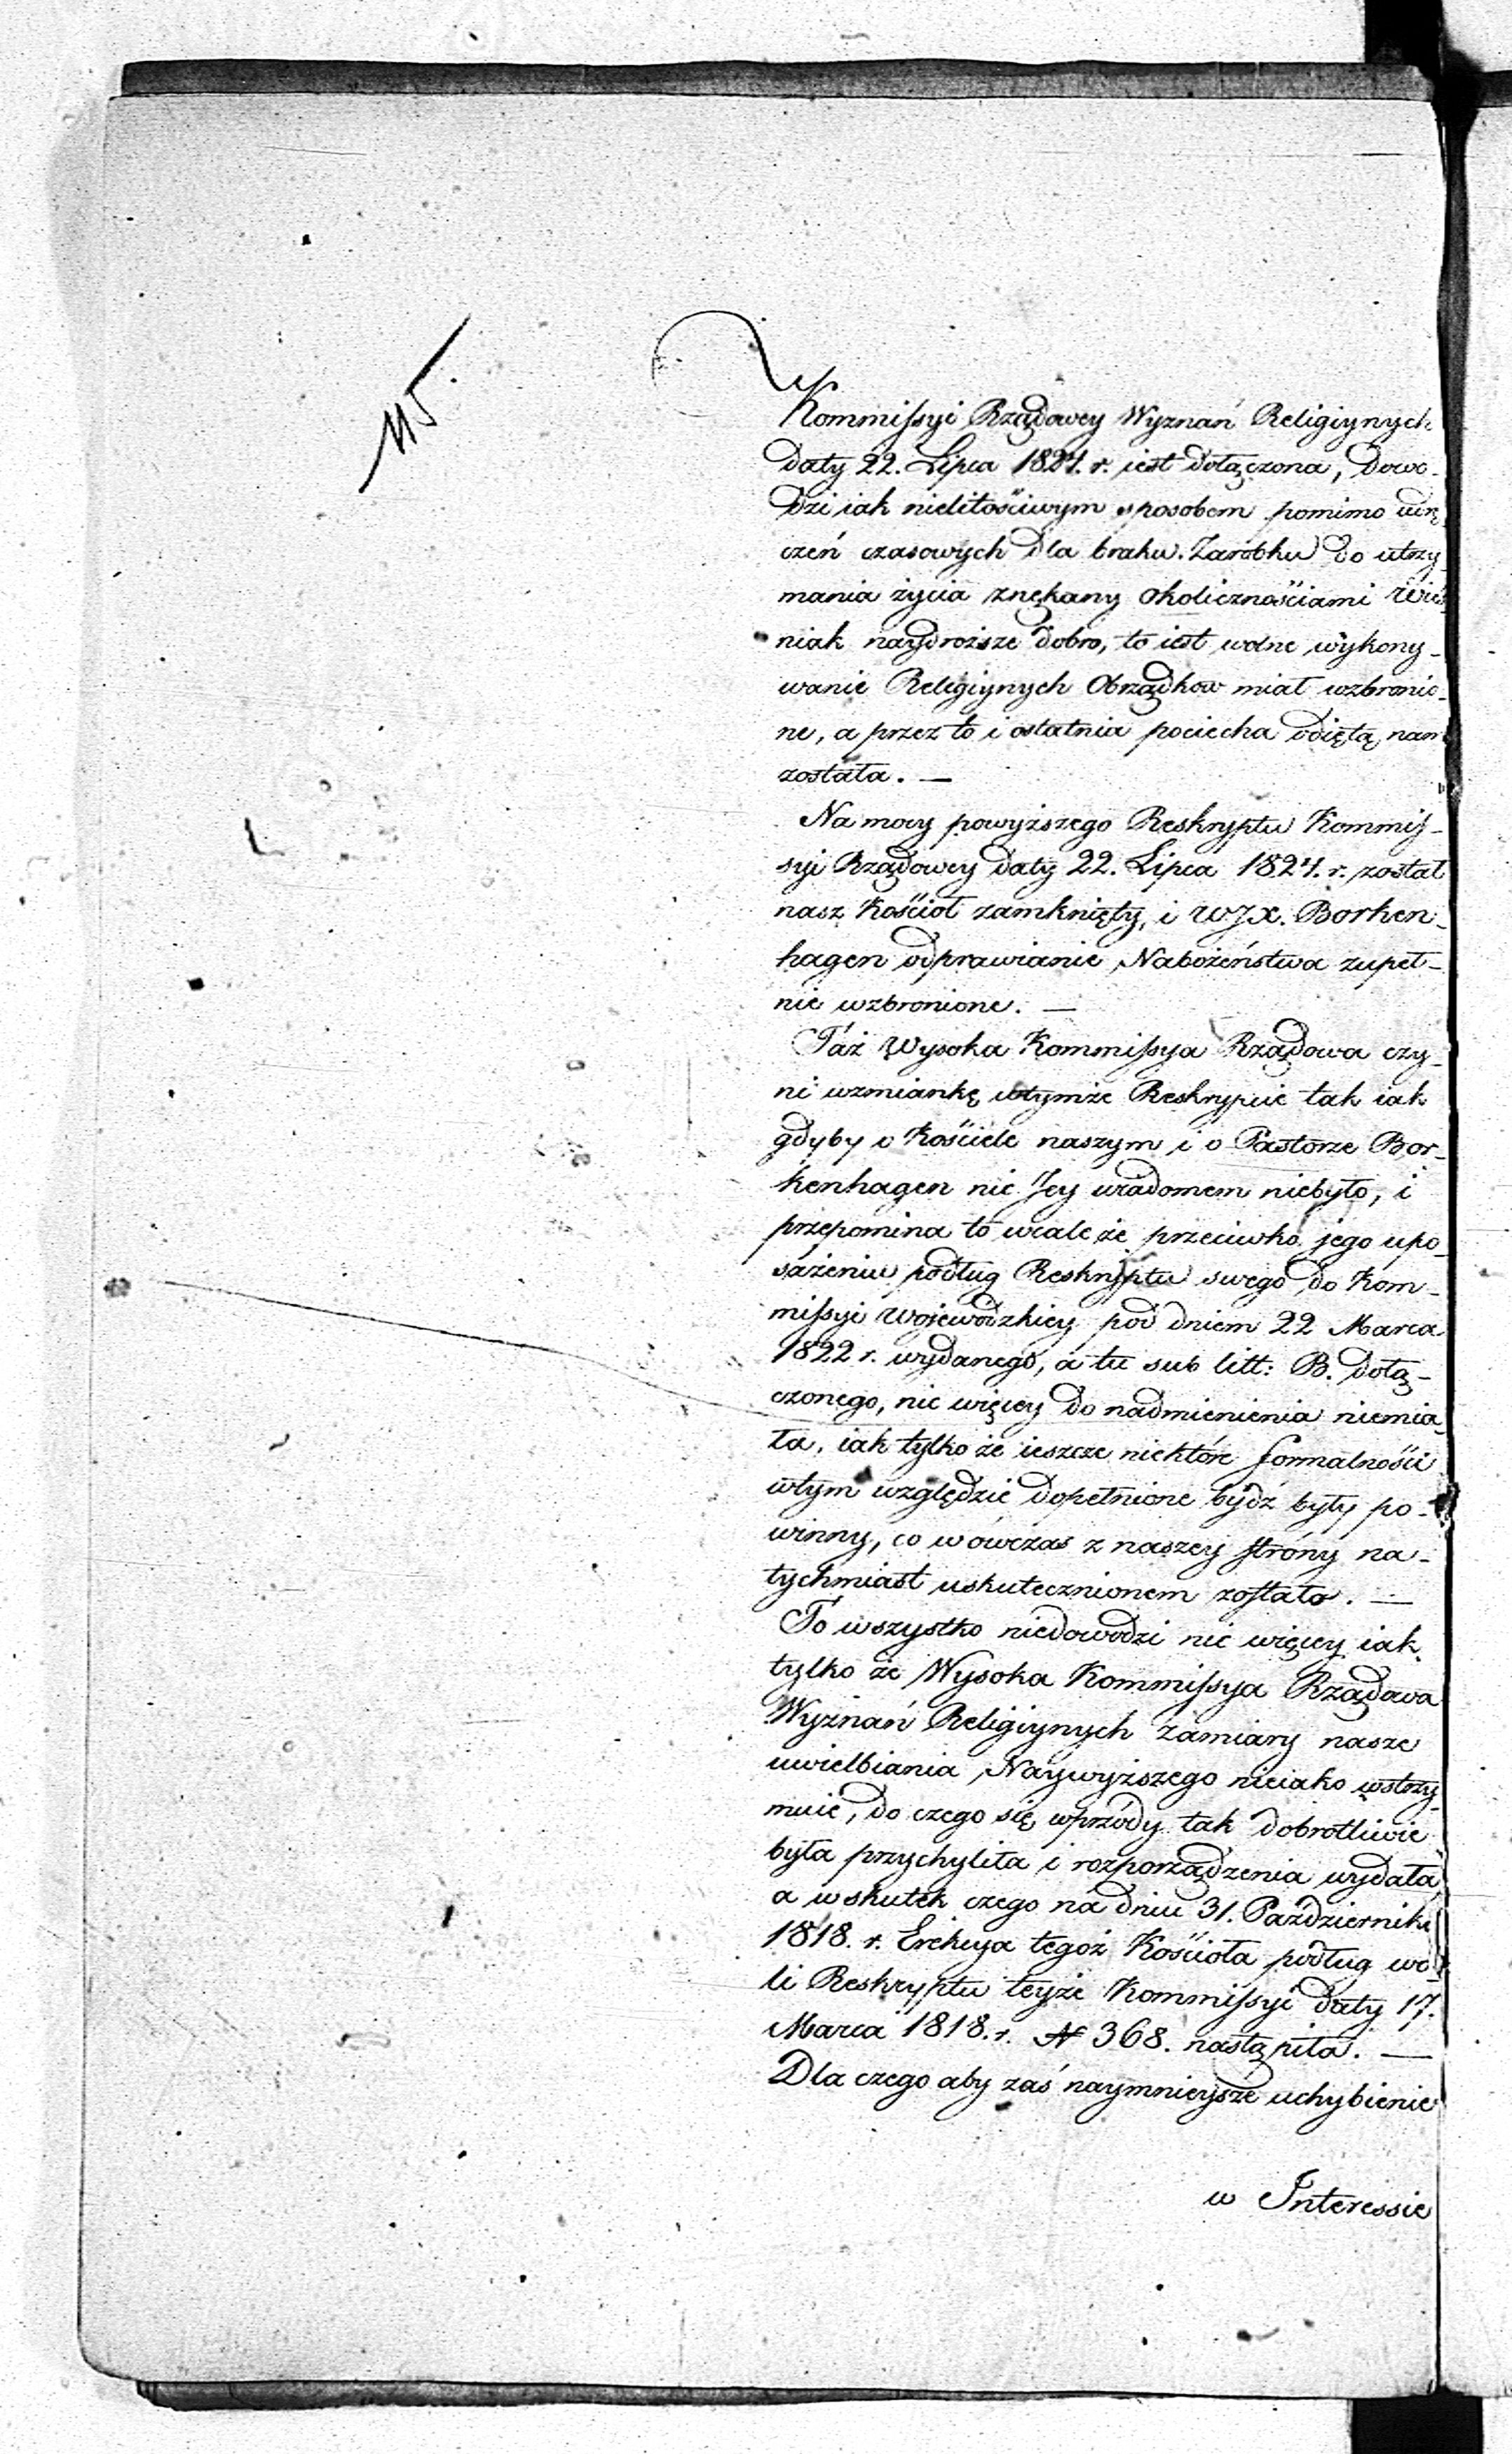 115.
Kommissyi Rządowey Wyznań Religiynych
daty 22. Lipca 1824. r. iest dołączona, dowo-
dzi iak nielitościwym sposobem pomimo udrę
czeń czasowych dla braku Zarobku do utrzy-
mania życia znękany okolicznościami Wieś
niak naydroższe dobro, to iest wolne wykony-
wanie Religiynych Obrządkow miał wzbronio-
ne, a przez to i ostatnia pociecha odiętą nam
została. —
Na mocy powyższego Reskryptu Kommis-
syi Rządowey daty 22. Lipca 1824. r. został
nasz Kościoł zamknięty, i WJX. Borken-
hagen odprawianie Nabożeństwa zupeł-
nie wzbronione. —
Táż Wysoka Kommissya Rządowa czy-
ni wzmiankę wtymże Reskrypcie tak iak
gdyby o Kościele naszym i o Pastorze Bor-
kenhagen nic Jey wiadomem niebyło, i
przepomina to wcale że przeciwko jego upo-
sażeniu podług Reskryptu swego do Kom-
missyi Wojewodzkiey pod dniem 22 Marca
1822 r. wydanego, a tu sub litt: B. dołą-
czonego, nic więcey do nadmienienia niemia-
ła, iak tylko że ieszcze niektóre formalności
wtym względzie dopełnione bydź były po-
winny, co wówczas z naszey stróny na-
tychmiast uskutecznionem zostało. —
To wszystko niedowodzi nic więcey iak
tylko że Wysoka Kommissya Rządowa
Wyznań Religiynych zamiary nasze
uwielbiania Naywyższego nieiako wstrzy-
muie, do czego się wprzódy tak dobrotliwie
była przychyliła i rozporządzenia wydała
a wskutek czego na dniu 31. Październiku
1818. r. Erekcya tegoż Kościoła podług wo-
li Reskryptu teyże Kommissyi daty 17.
Marca 1818. r. N 368. nastąpiła. —
Dla czego aby zaś naymnieysze uchybienie
w Interessie